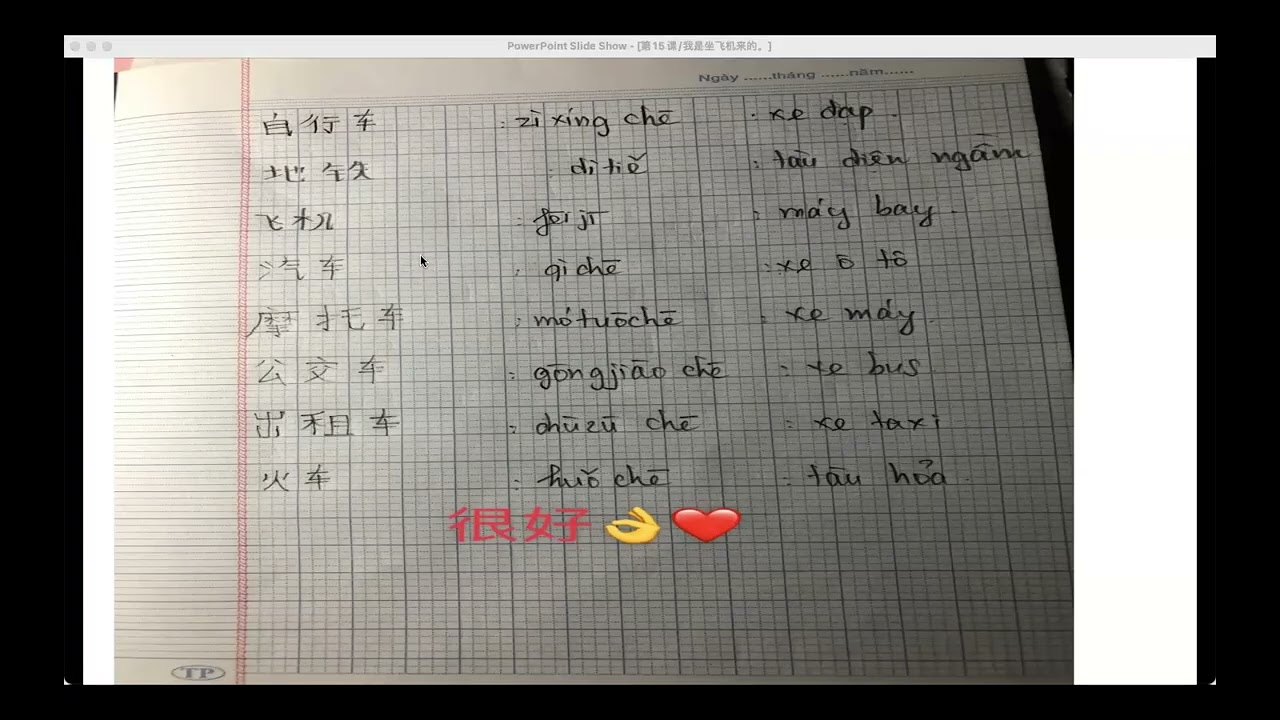 PowerPoint Slide Show - [第15课/我是坐飞机来的。]
Ngày ......tháng ......năm......
自行车 : zì xíng chē : xe đạp.
地铁 : dì tiě : tàu điện ngầm
飞机 : fēi jī : máy bay.
汽车 : qì chē : xe ô tô
摩托车 : mótuōchē : xe máy.
公交车 : gōngjiāo chē : xe bus
出租车 : chūzū chē : xe taxi
火车 : huǒ chē : tàu hỏa.
很好👌❤️
TP